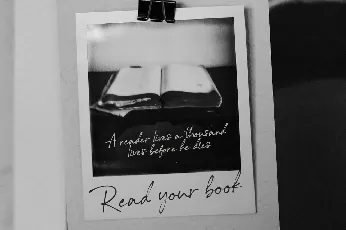 A reader lives a thousand
lives before he dies
Read your book